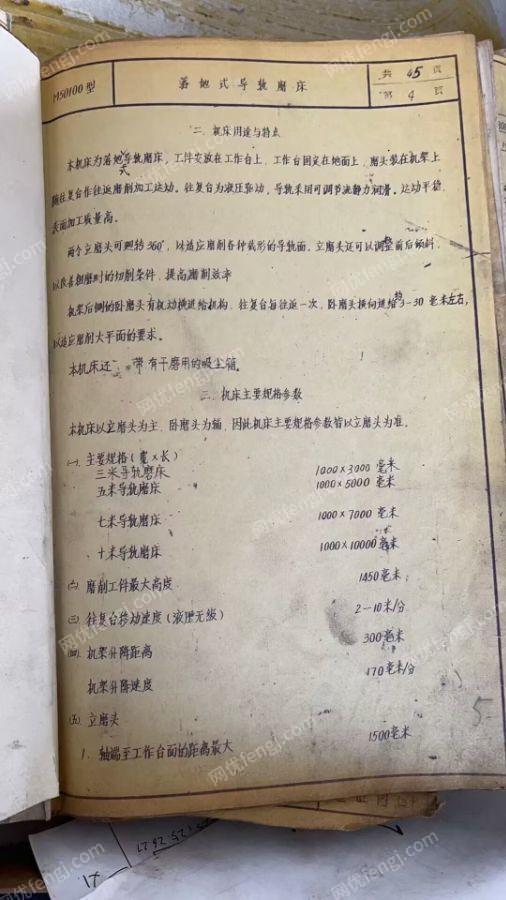 M50100型
落地式导轨磨床
共 45 页
第 4 页
二、机床用途与特点
本机床为落地式导轨磨床，工件安放在工作台上，工作台固定在地面上，磨头装在机架上
随往复台作往返磨削加工运动。往复台为液压驱动，导轨采用可调节流静力润滑。运动平稳，
表面加工质量高。
两个立磨头可回转360°，以适应磨削各种截形的导轨面。立磨头还可以调整前后倾斜，
以改善粗磨时的切削条件，提高磨削效率
机架后侧的卧磨头有机动横进给机构，往复台每往返一次，卧磨头横向进给约3-30毫米左右，
以适应磨削大平面的要求。
本机床还 带有干磨用的吸尘箱。
三、机床主要规格参数
本机床以立磨头为主，卧磨头为辅，因此机床主要规格参数皆以立磨头为准。
(一) 主要规格(宽×长)
三米导轨磨床 1000×3000 毫米
五米导轨磨床 1000×5000 毫米
七米导轨磨床 1000×7000 毫米
十米导轨磨床 1000×10000 毫米
(二) 磨削工件最大高度 1450毫米
(三) 往复台移动速度(液压无级) 2-10米/分
(四) 机架升降距离 300毫米
机架升降速度 470毫米/分
(五) 立磨头
1. 轴端至工作台面的距离最大 1500毫米
5
网优fengj.com